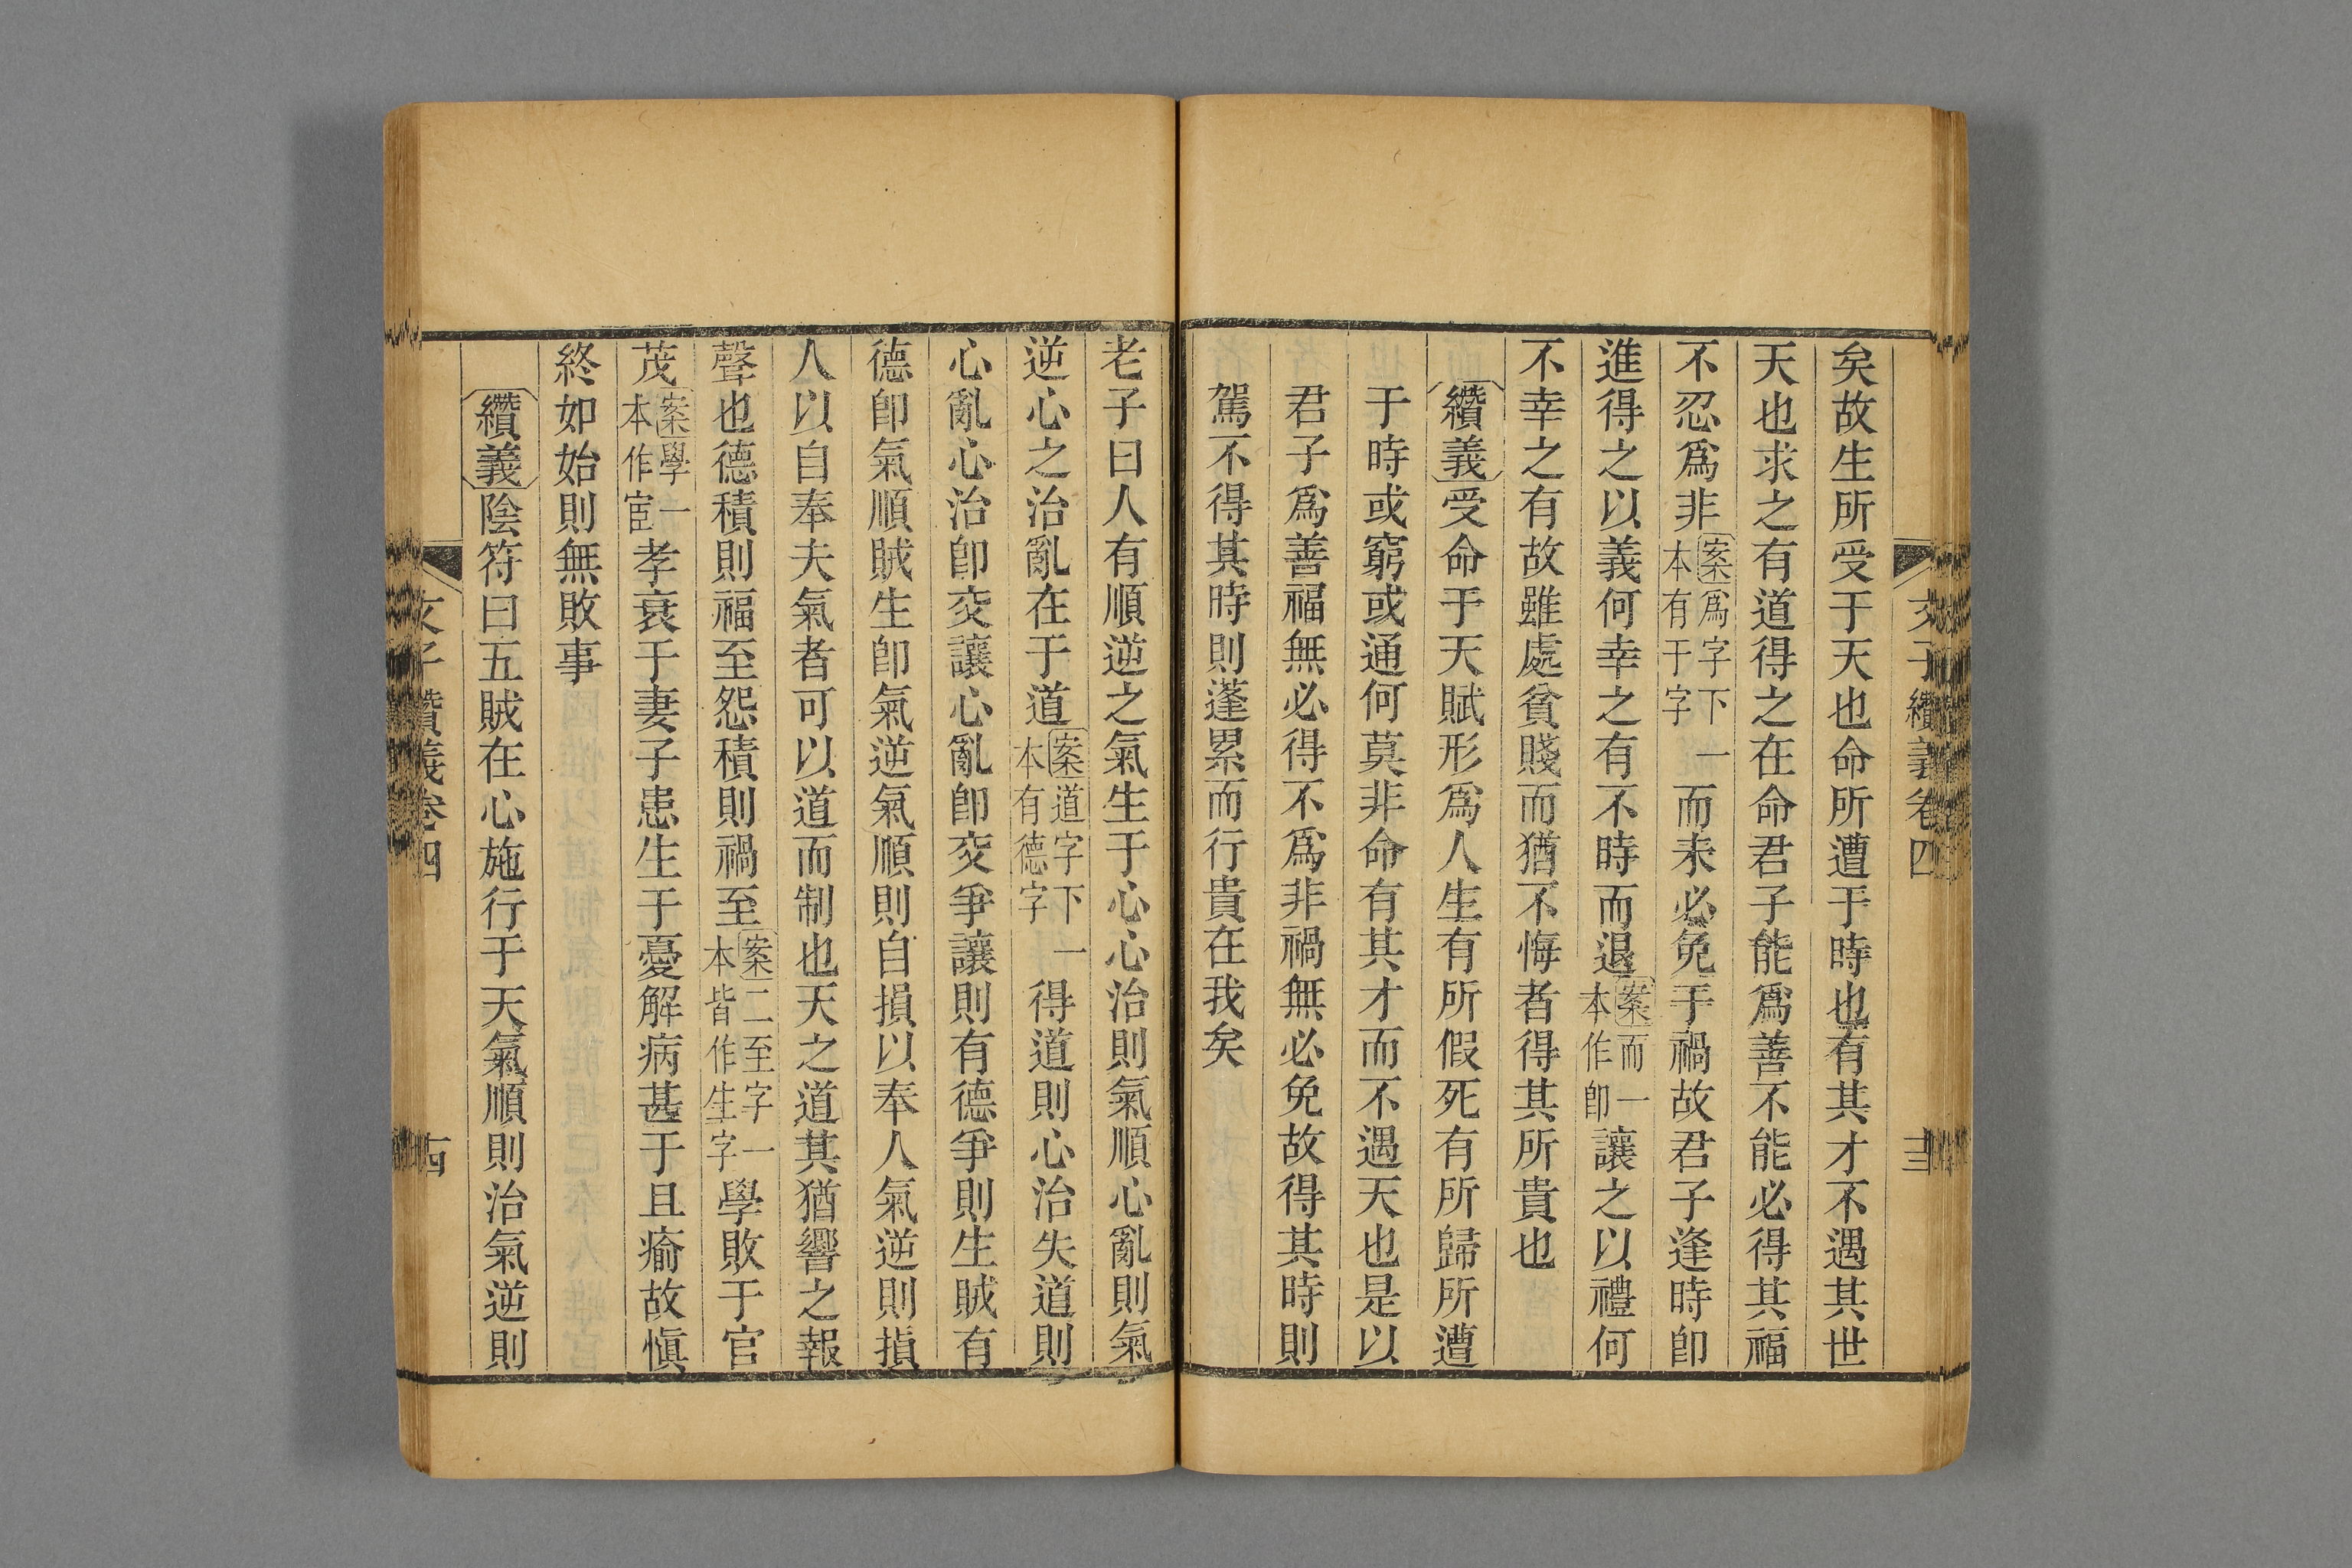 文子纘義卷四 十三
矣故生所受于天也命所遭于時也有其才不遇其世
天也求之有道得之在命君子能爲善不能必得其福
不忍爲非案爲字下一本有于字而未必免于禍故君子逢時卽
進得之以義何幸之有不時而退案而一本作卽讓之以禮何
不幸之有故雖處貧賤而猶不悔者得其所貴也
纘義受命于天賦形爲人生有所假死有所歸所遭
于時或窮或通何莫非命有其才而不遇天也是以
君子爲善福無必得不爲非禍無必免故得其時則
駕不得其時則蓬累而行貴在我矣
老子曰人有順逆之氣生于心心治則氣順心亂則氣
逆心之治亂在于道案道字下一本有德字得道則心治失道則
心亂心治卽交讓心亂卽交爭讓則有德爭則生賊有
德卽氣順賊生卽氣逆氣順則自損以奉人氣逆則損
人以自奉夫氣者可以道而制也天之道其猶響之報
聲也德積則福至怨積則禍至案二至字一本皆作生字學敗于官
茂案學一本作宦孝衰于妻子患生于憂解病甚于且瘉故愼
終如始則無敗事
纘義陰符曰五賊在心施行于天氣順則治氣逆則
文子纘義卷四 十四